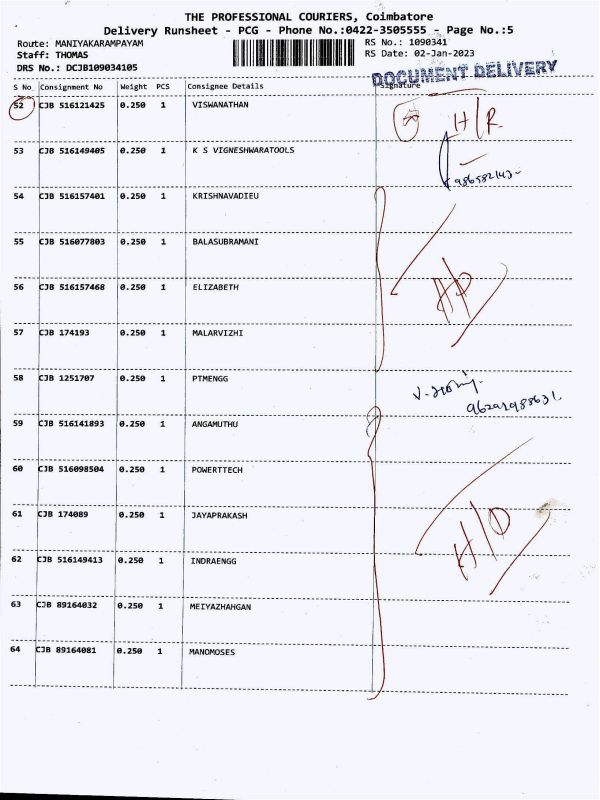 THE PROFESSIONAL COURIERS, Coimbatore
Delivery Runsheet - PCG - Phone No.:0422-3505555 - Page No.:5
Route: MANIYAKARAMPAYAM RS No.: 1090341
Staff: THOMAS RS Date: 02-Jan-2023
DRS No.: DCJB109034105
DOCUMENT DELIVERY
S No Consignment No Weight PCS Consignee Details Signature
52 CJB 516121425 0.250 1 VISWANATHAN H/R
53 CJB 516149405 0.250 1 K S VIGNESHWARATOOLS
54 CJB 516157401 0.250 1 KRISHNAVADIEU
55 CJB 516077803 0.250 1 BALASUBRAMANI
56 CJB 516157468 0.250 1 ELIZABETH H/D
57 CJB 174193 0.250 1 MALARVIZHI
58 CJB 1251707 0.250 1 PTMENGG
59 CJB 516141893 0.250 1 ANGAMUTHU
60 CJB 516098504 0.250 1 POWERTTECH
61 CJB 174089 0.250 1 JAYAPRAKASH H/D
62 CJB 516149413 0.250 1 INDRAENGG
63 CJB 89164032 0.250 1 MEIYAZHAHGAN
64 CJB 89164081 0.250 1 MANOMOSES